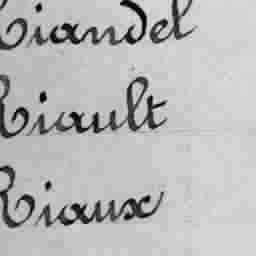 Riandel
Riault
Riaux